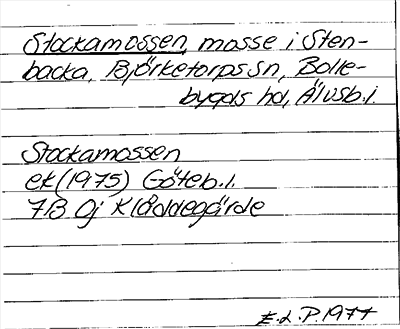 Stockamossen, mosse i Sten-
backa, Björketorps sn, Bolle-
bygds hd, Älvsb.l.
Stockamossen
ek (1975) Göteb.l.
7B 0j Klåddegärde
E.L.P. 1977